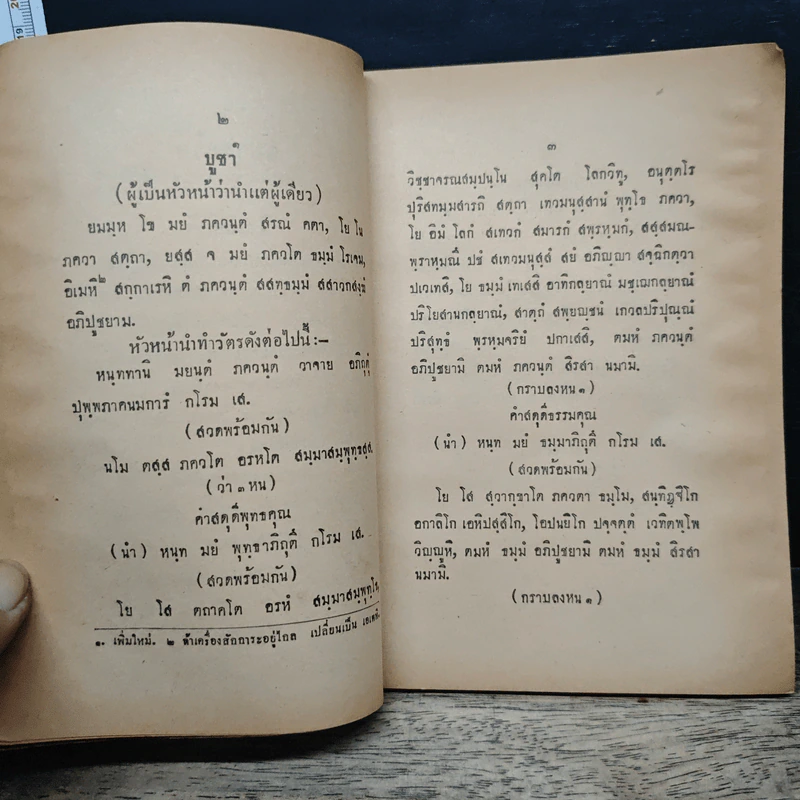 ๒
บูชา๑
(ผู้เป็นหัวหน้าว่านำแต่ผู้เดียว)
ยมมฺห โข มยํ ภควนฺตํ สรณํ คตา, โย โน
ภควา สตฺถา, ยสฺส จ มยํ ภควโต ธมฺมํ โรเจม,
อิเมหิ๒ สกฺกาเรหิ ตํ ภควนฺตํ สสทฺธมฺมํ สสาวกสงฺฆํ
อภิปูชยาม.
หัวหน้านำทำวัตรดังต่อไปนี้:–
หนฺททานิ มยนฺตํ ภควนฺตํ วาจาย อภิคุตุํ
ปุพฺพภาคนมการํ กโรม เส.
(สวดพร้อมกัน)
นโม ตสฺส ภควโต อรหโต สมฺมาสมฺพุทฺธสฺส.
(ว่า ๓ หน)
คำสดุดีพุทธคุณ
(นำ) หนฺท มยํ พุทฺธาภิถุตึ กโรม เส.
(สวดพร้อมกัน)
โย โส ตถาคโต อรหํ สมฺมาสมฺพุทฺโธ,
๑. เพิ่มใหม่. ๒ ถ้าเครื่องสักการะอยู่ไกล เปลี่ยนเป็น เอเตหิ.
๓
วิชฺชาจรณสมฺปนฺโน สุคโต โลกวิทู, อนุตฺตโร
ปุริสทมฺมสารถิ สตฺถา เทวมนุสฺสานํ พุทฺโธ ภควา,
โย อิมํ โลกํ สเทวกํ สมารกํ สพฺรหฺมกํ, สสฺสมณ-
พฺราหฺมณึ ปชํ สเทวมนุสฺสํ สยํ อภิญฺญา สจฺฉิกตฺวา
ปเวเทสิ, โย ธมฺมํ เทเสสิ อาทิกลฺยาณํ มชฺเฌกลฺยาณํ
ปริโยสานกลฺยาณํ, สาตฺถํ สพฺยญฺชนํ เกวลปริปุณฺณํ
ปริสุทฺธํ พฺรหฺมจริยํ ปกาเสสิ, ตมหํ ภควนฺตํ
อภิปูชยามิ ตมหํ ภควนฺตํ สิรสา นมามิ.
(กราบลงหน ๑)
คำสดุดีธรรมคุณ
(นำ) หนฺท มยํ ธมฺมาภิถุตึ กโรม เส.
(สวดพร้อมกัน)
โย โส สฺวากฺขาโต ภควตา ธมฺโม, สนฺทิฏฺฐิโก
อกาลิโก เอหิปสฺสิโก, โอปนยิโก ปจฺจตฺตํ เวทิตพฺโพ
วิญฺญูหิ, ตมหํ ธมฺมํ อภิปูชยามิ ตมหํ ธมฺมํ สิรสา
นมามิ.
(กราบลงหน ๑)